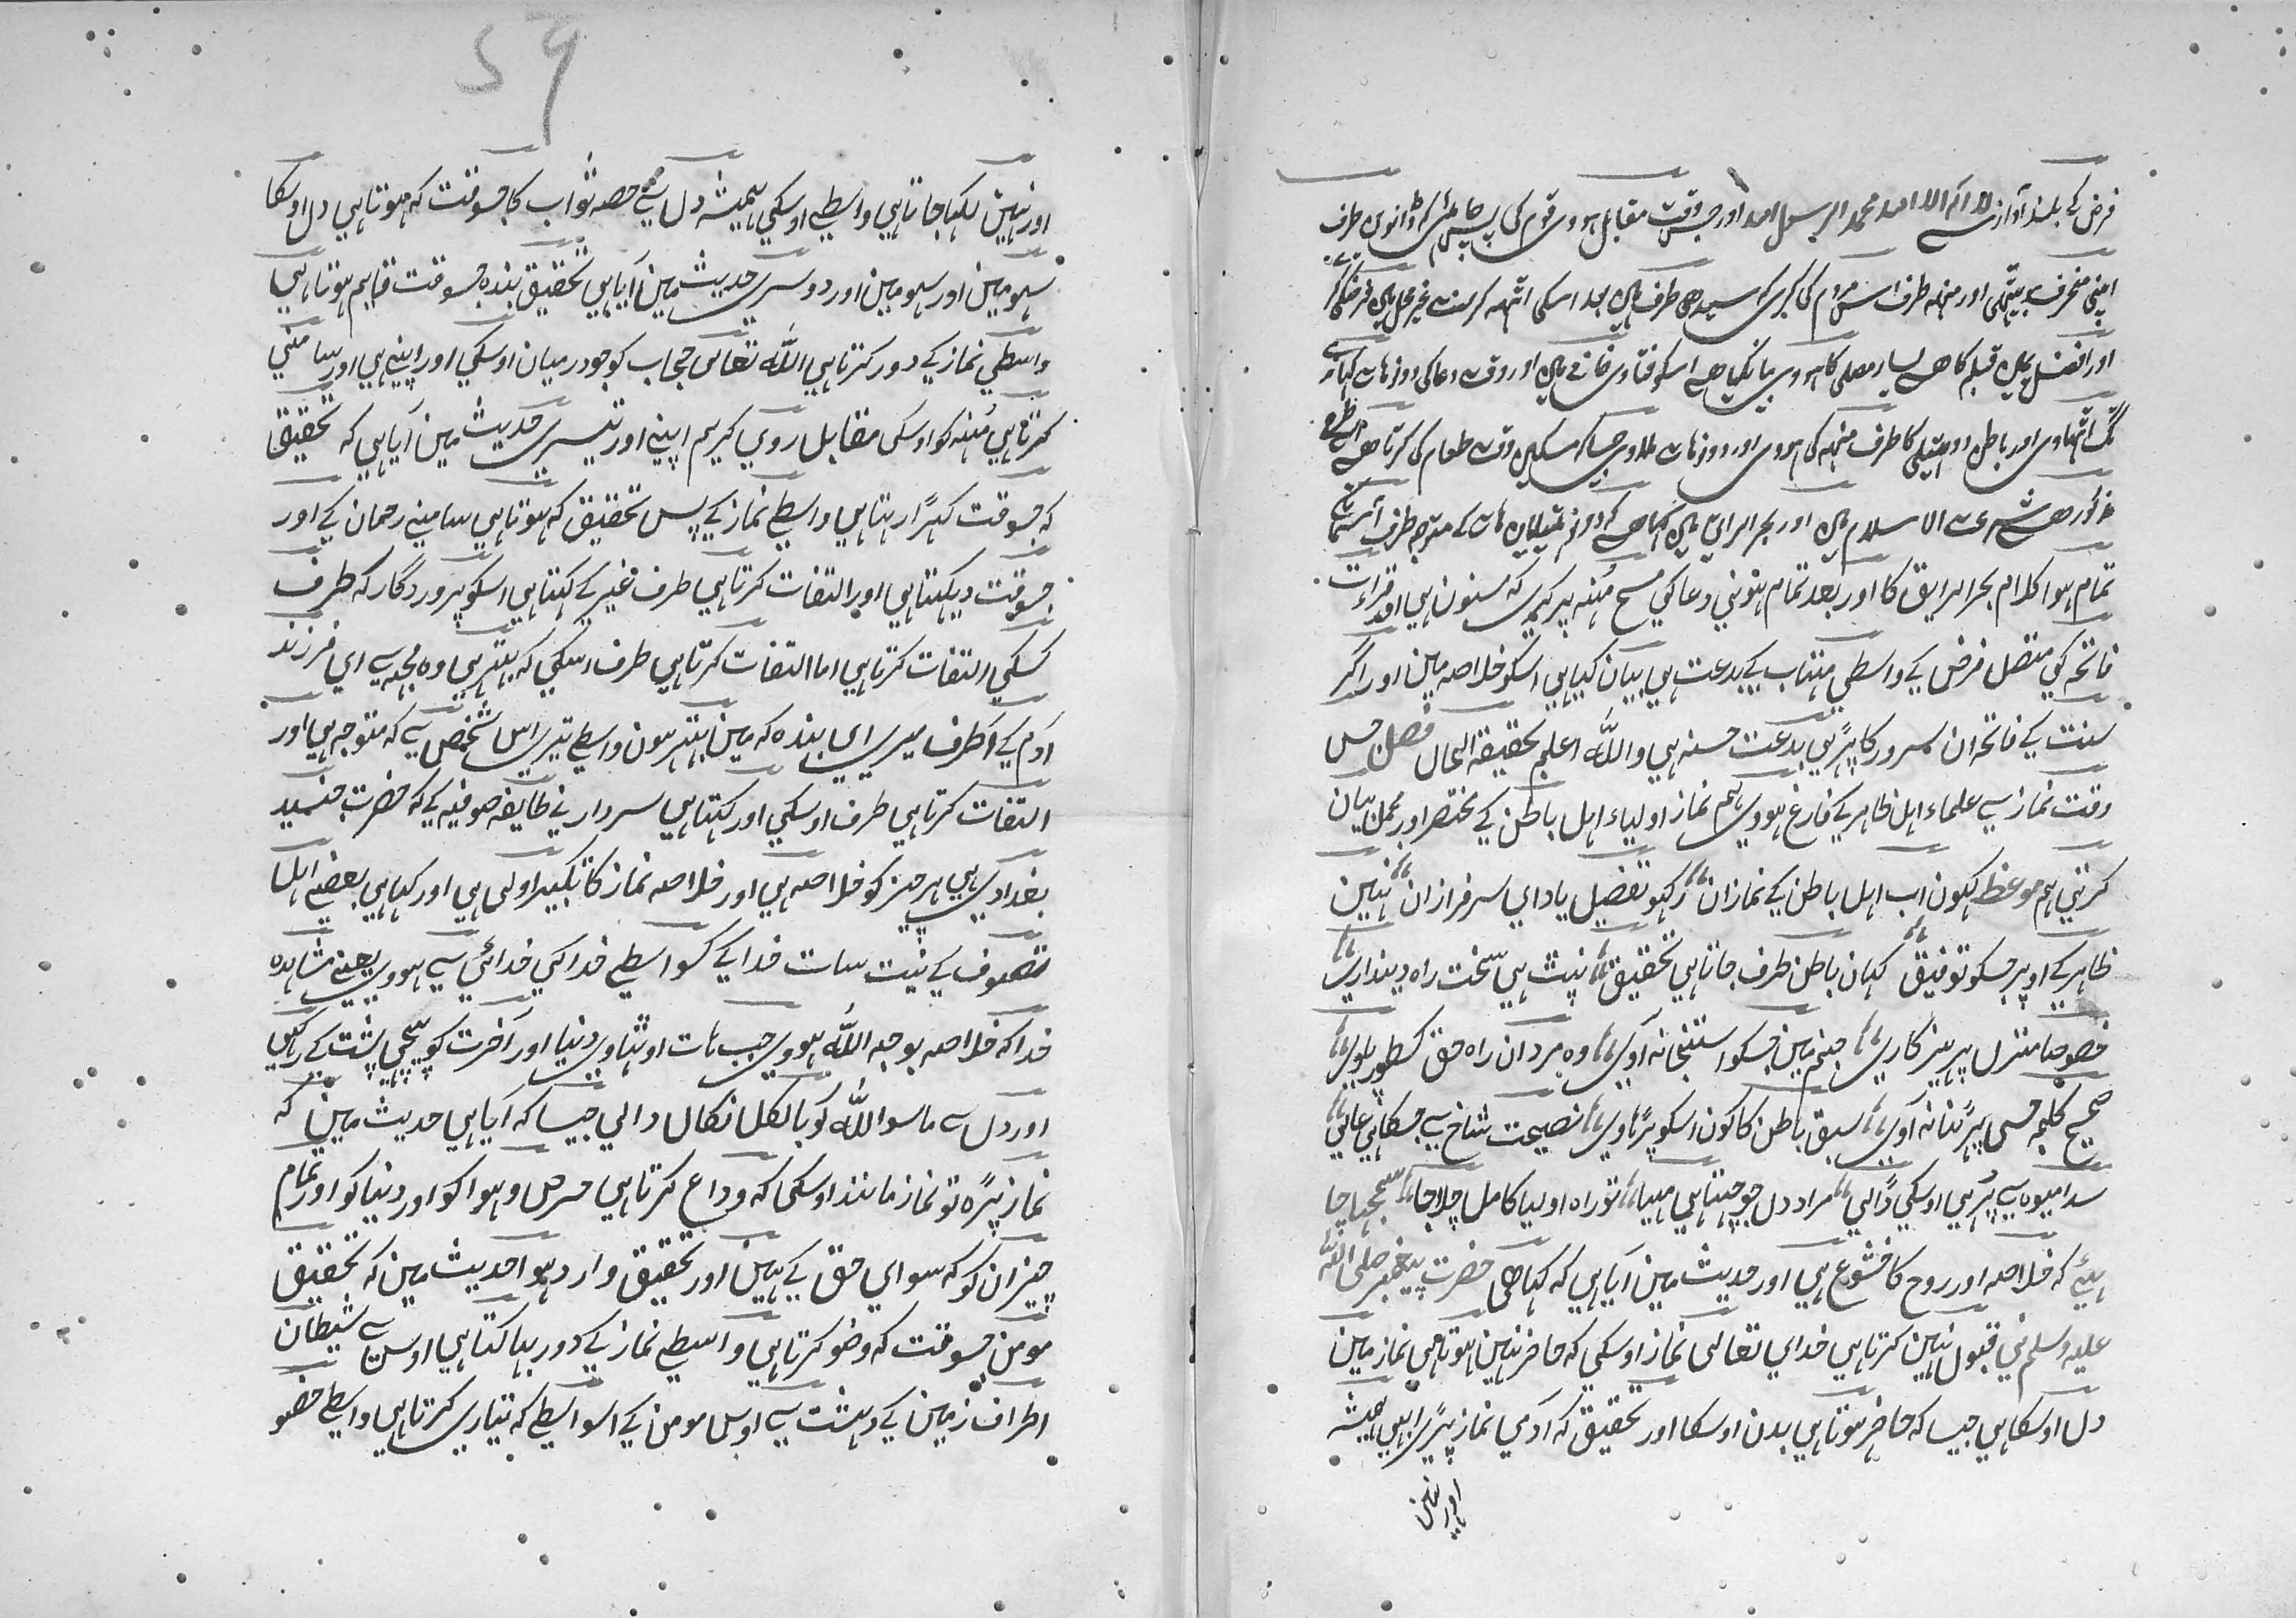 فرض کے بلند آواز سے لا الہ الا اللہ محمد الرسول اللہ اور جس وقت مقابل ہووی قوم کی پس چاہئے کہ داہنوں طرف
اپنی منحرف بیٹہی اور منہہ طرف
اور افضل قبلہ کا ہے یسار مصلی کا ہووی اسکو فتاوی میں اور وقت دعا کی دونو ہات
تک اٹہاوی اور باطن ہتیلی کا طرف منہہ کی ہووی اور دونو ہات ملاوی جیسا کہ مسکین وقت طعام کی کرتا ہے
مذکور ہے شرعت الاسلام میں اور بحر الرایق میں لکہا ہے کہ دونو ہتیلیاں ہات کے متوجہ طرف آسمان
تمام ہوا کلام بحر الرایق کا اور بعد تمام ہونی دعا کی مسح مُنہ پر کری کہ مسنون ہی اور قراءت
فاتحہ کی متصل فرض کے واسطی مہمات کے بدعت ہی بیان کیا ہی اسکو خلاصہ مین اور اگر
سنت کے فاتحہ ان سرور کا پڑہی بدعت حسنہ ہی واللّٰه اعلم بحقیقۃ الحال فصل جس
وقت نماز سے علماء اہل ظاہر کے فارغ ہووی ہم نماز اولیاء اہل باطن کے مختصر اور مجمل بیان
کرتی ہم موعظ لکہون اب اہل باطن کے نمازان رکہو تفضیل یاد ای سرفرازان نہین
ظاہر کے اوپر جسکو توفیق کہان باطن طرف جاتا ہی تحقیق نپٹ ہی سخت راہ دینداری
خصوصا منزل پرہیزگاری جنم مین جسکو استنجا نہ آوی وہ مردان راہ حق کسطور پاوی
صحیح کلمہ جسی پڑنا نہ آوی سبق باطن کا کون اسکو پڑہاوی نصیحت شاخ ہے جسکا ہی عالی
سدا میوہ سے پُر ہی اوسکی ڈالی مراد دل جو چہتا ہی میا تو راہ اولیا کامل چلا جا سمجہا چا
ہئے کہ خلاصہ اور روح کا خشوع ہی اور حدیث مین آیا ہی کہ کہا ہی حضرت پیغمبر صلی اللّٰه
علیہ وسلم نی قبول نہین کرتا ہی خدای تعالی نماز اوسکی کہ حاضر نہین ہوتا ہی نماز مین
دل اوسکا ہی جیسا کہ حاضر ہوتا ہی بدن اوسکا اور تحقیق کہ آدمی نماز پڑہی ہمیشہ
اور نہین
59
اور نہین لکہا جاتا ہی واسطے اوسکی ہمیشہ دل سے حصہ ثواب کا جسوقت کہ ہوتا ہی دل اوسکا
سہو مین اور سہو مین اور دوسری حدیث مین آیا ہی تحقیق بندہ جسوقت قایم ہوتا ہی
واسطی نماز کے دور کرتا ہی اللّٰه تعالی حجاب کو جو درمیان اوسکی اور اپنے ہی اور سامنی
کرتا ہی مُنہ کو اوسکی مقابل روی کریم اپنے اور تیسری حدیث مین آیا ہی کہ تحقیق
کہ جسوقت کہڑا رہتا ہی واسطے نماز کے پس تحقیق کہ ہوتا ہی سامنے رحمان کے اور
جسوقت دیکہتا ہی اور التفات کرتا ہی طرف غیر کے کہتا ہی اسکو پروردگار کہ طرف
کسکی التفات کرتا ہی اما التفات کرتا ہی طرف اسکی کہ بہتر ہی وہ مجہہ سے ای فرزند
آدم کے آ طرف میری ای بندہ کہ مین بہتر ہون واسطے تیری اس شخص سے کہ متوجہ ہی اور
التفات کرتا ہی طرف اوسکی اور کہتا ہی سردار نے طایفہ صوفیہ کے کہ حضرت جنید
بغدادی ہی ہر چیز کو خلاصہ ہی اور خلاصہ نماز کا تکبیر اولی ہی اور کہا ہی بعضے اہل
تصوف کے نیت سات خدا کے کسواسطے خدا کی خدائی سے ہووی یعنے مشاہدہ
خدا کہ خلاصہ بوجہ اللّٰه ہووی جب ہات اوٹہاوی دنیا اور آخرت کو پیچہی پشت کے رکہی
اور دل سے ماسوا اللّٰه کو بالکل نکال دالی جیسا کہ آیا ہی حدیث مین کہ
نماز پڑہ تو نماز مانند اوسکی کہ وداع کرتا ہی حرص و ہوا کو اور دنیا کو اور تمام
چیزان کو کہ سوای حق کے ہین اور تحقیق وارد ہوا حدیث مین کہ تحقیق
مومن جسوقت کہ وضو کرتا ہی واسطے نماز کے دور بہاکتا ہی اوس سے شیطان
اطراف زمین کے دہشت سے اوس مومن کے اسواسطے کہ تیاری کرتا ہی واسطے حضو